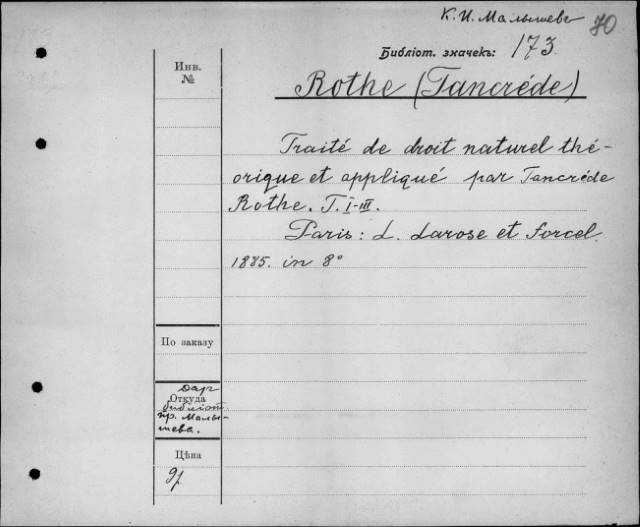 К. И. Малышевъ 70
Библіот. значекъ: 173.
Инв.
№
Rothe (Tancréde)
Traité de droit naturel thé-
orique et appliqué par Tancréde
Rothe. T. I-III.
Paris: L. Larose et Forcel.
1885. in 8°
По заказу
Дар
Откуда
библіот.
пр. Малы-
шева.
Цѣна
9р.